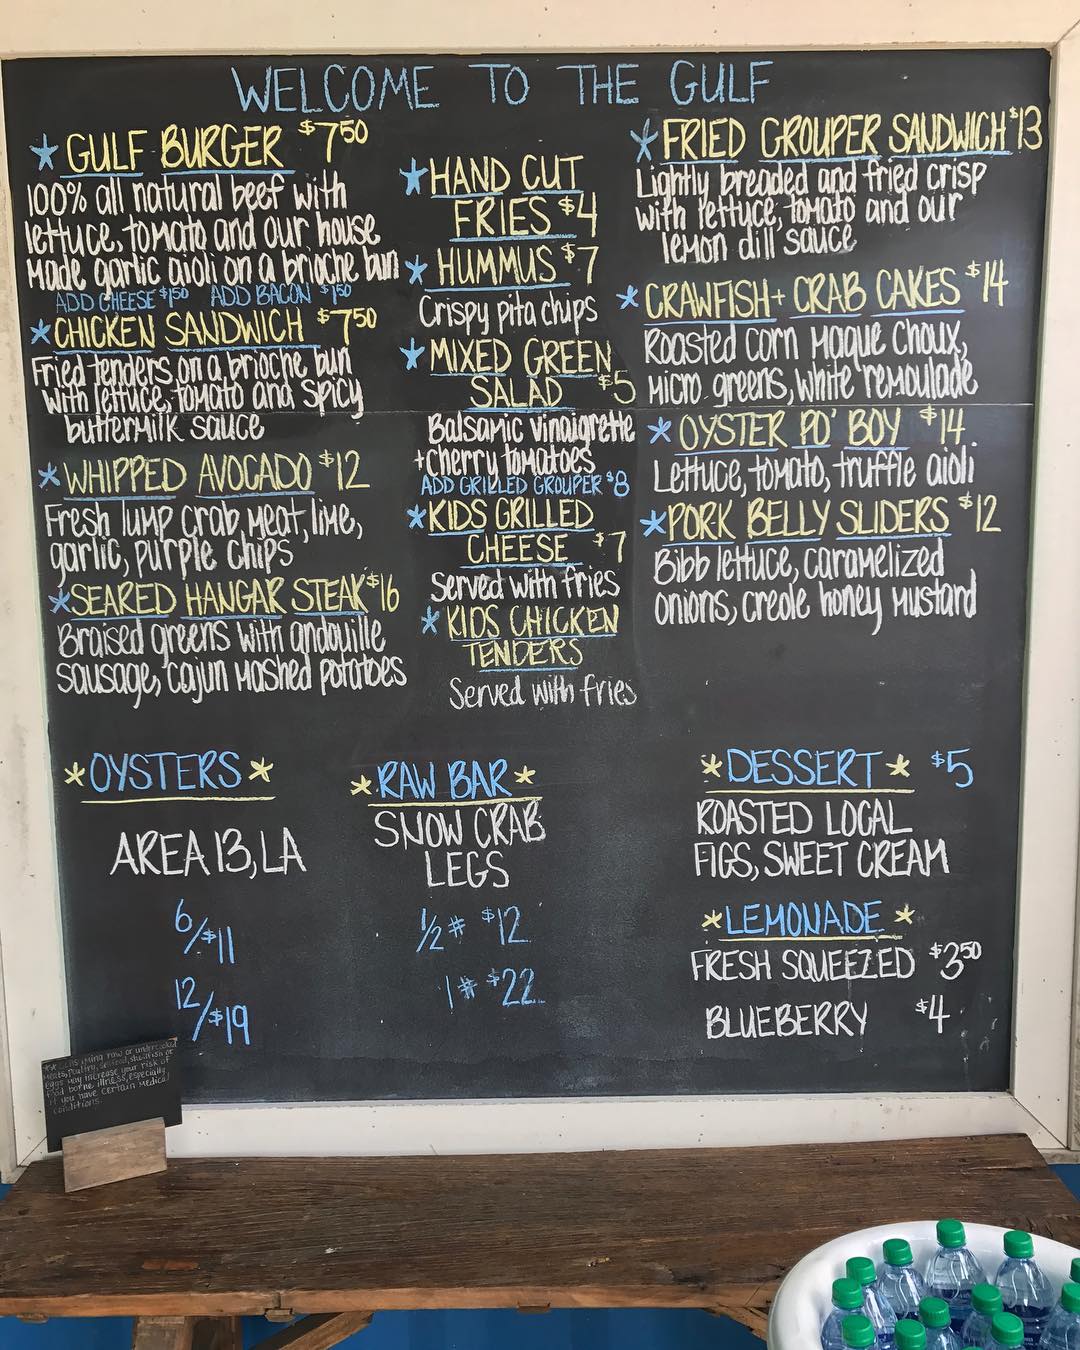 WELCOME TO THE GULF
GULF BURGER $7.50
100% all natural beef with
lettuce, tomato and our house
made garlic aioli on a brioche bun
ADD CHEESE $1.50 ADD BACON $1.50
CHICKEN SANDWICH $7.50
Fried tenders on a brioche bun
with lettuce, tomato and spicy
buttermilk sauce
WHIPPED AVOCADO $12
Fresh lump crab meat, lime,
garlic, purple chips
SEARED HANGAR STEAK $16
Braised greens with andouille
sausage, cajun mashed potatoes
HAND CUT
FRIES $4
HUMMUS $7
Crispy pita chips
MIXED GREEN
SALAD $5
Balsamic vinaigrette
+cherry tomatoes
ADD GRILLED GROUPER $8
KIDS GRILLED
CHEESE $7
Served with fries
KIDS CHICKEN
TENDERS
Served with fries
FRIED GROUPER SANDWICH $13
Lightly breaded and fried crisp
with lettuce, tomato and our
lemon dill sauce
CRAWFISH + CRAB CAKES $14
Roasted corn maque choux,
micro greens, white remoulade
OYSTER PO' BOY $14.
Lettuce, tomato, truffle aioli
PORK BELLY SLIDERS $12
Bibb lettuce, caramelized
onions, creole honey mustard
*OYSTERS*
AREA 13, LA
6/$11
12/$19
*RAW BAR*
SNOW CRAB
LEGS
1/2 # $12
1 # $22
*DESSERT* $5
ROASTED LOCAL
FIGS, SWEET CREAM
*LEMONADE*
FRESH SQUEEZED $3.50
BLUEBERRY $4
** Consuming raw or undercooked
meats, poultry, seafood, shellfish or
eggs may increase your risk of
food borne illness, especially
if you have certain medical
conditions.